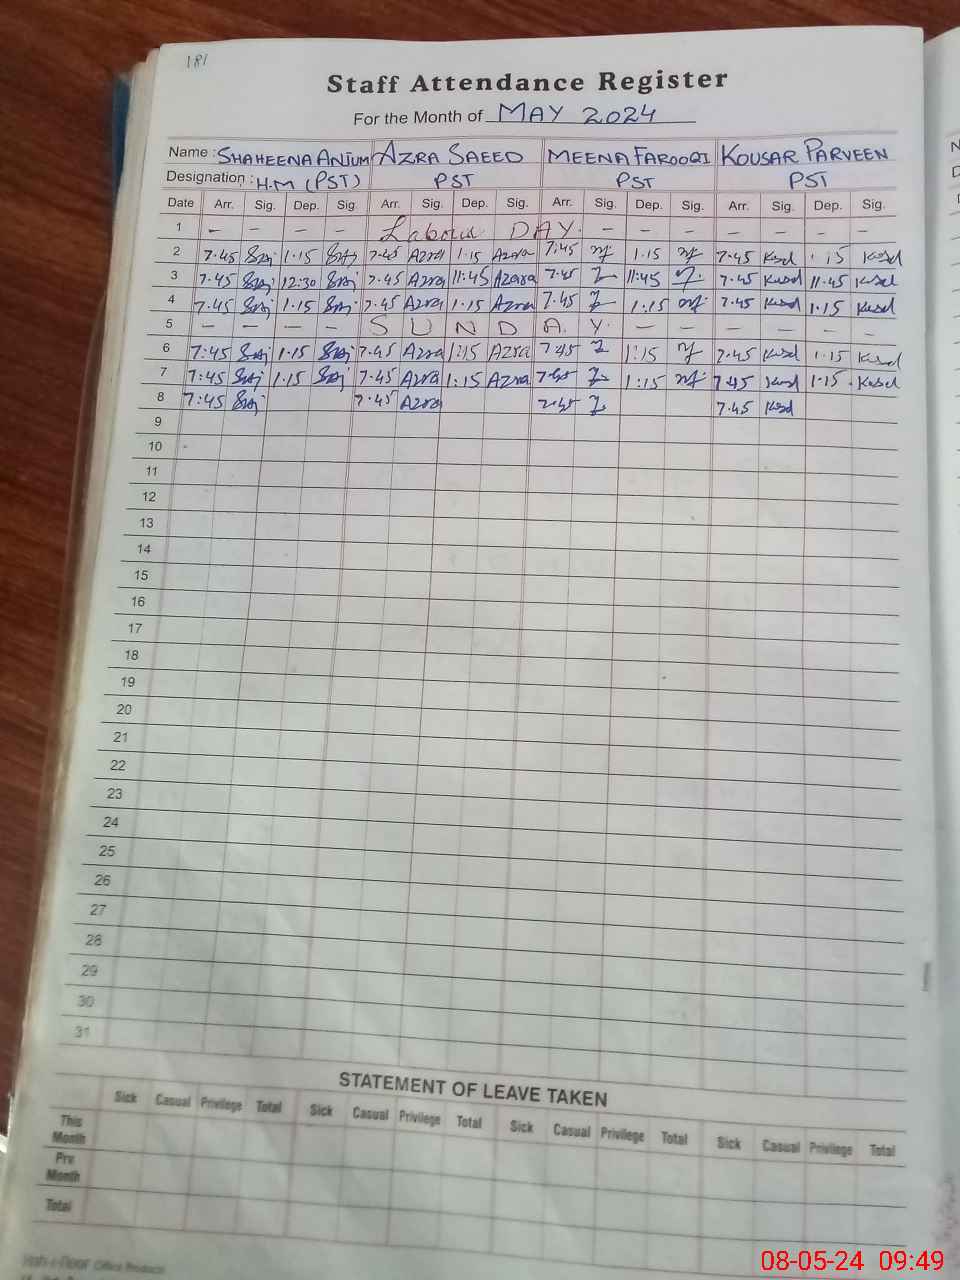 181
Staff Attendance Register
For the Month of MAY 2024
Name : SHAHEENA ANJUM AZRA SAEED MEENA FAROOQI KOUSAR PARVEEN
Designation : H.M (PST) PST PST PST
Date Arr. Sig. Dep. Sig. Arr. Sig. Dep. Sig. Arr. Sig. Dep. Sig. Arr. Sig. Dep. Sig.
1 - - - - Labour DAY. - - - - - - -
2 7.45 1.15 7.45 Azra 1.15 Azra 7.45 1.15 7.45 1.15
3 7.45 12:30 7.45 Azra 11:45 Azara 7.45 11:45 7.45 11.45
4 7.45 1.15 7.45 Azra 1.15 Azra 7.45 1.15 7.45 1.15
5 - - - - S U N D A. Y. - - - - - -
6 7:45 1.15 7.45 Azra 1:15 Azra 7.45 1:15 7.45 1.15
7 7:45 1.15 7.45 Azra 1:15 Azra 7.45 1:15 7.45 1.15
8 7:45 7.45 Azra 7.45 7.45
9
10
11
12
13
14
15
16
17
18
19
20
21
22
23
24
25
26
27
28
29
30
31
STATEMENT OF LEAVE TAKEN
Sick Casual Privilege Total Sick Casual Privilege Total Sick Casual Privilege Total Sick Casual Privilege Total
This Month
Prv Month
Total
Office Products
08-05-24 09:49